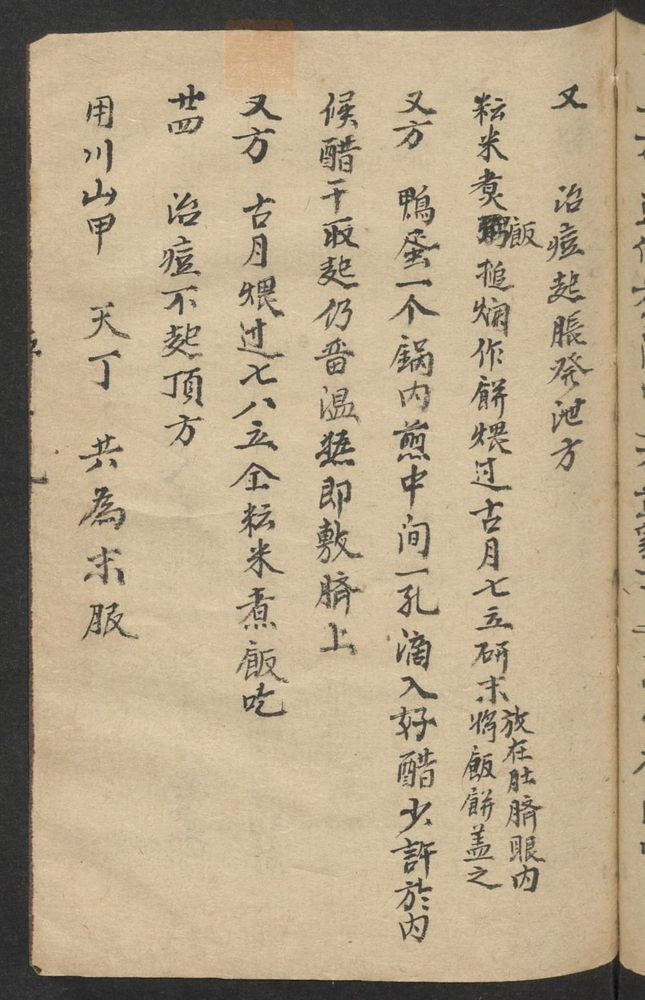 又 治痘起脹發泄方
粘米煮飯搥烱作餅煨过古月七立研末放在肚臍眼内将飯餅盖之
又方 鴨蛋一个鍋内煎中间一孔滴入好醋少許於内
候醋干取起仍畨温𤍠即敷臍上
又方 古月煨过七八立仝粘米煮飯吃
廿四 治痘不起頂方
用川山甲 天丁 共為末服